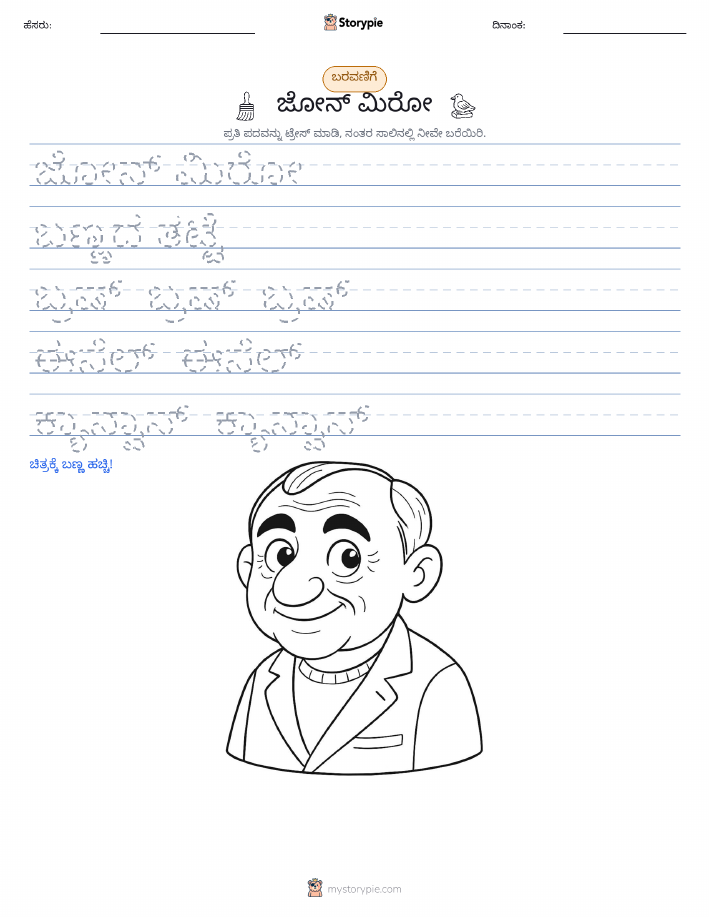 ಹೆಸರು:
Storypie
ದಿನಾಂಕ:
ಬರವಣಿಗೆ
ಜೋನ್ ಮಿರೋ
ಪ್ರತಿ ಪದವನ್ನು ಟ್ರೇಸ್ ಮಾಡಿ, ನಂತರ ಸಾಲಿನಲ್ಲಿ ನೀವೇ ಬರೆಯಿರಿ.
ಜೋನ್ ಮಿರೋ
ಬಣ್ಣದ ತಟ್ಟೆ
ಬ್ರಷ್ ಬ್ರಷ್ ಬ್ರಷ್
ಈಸೆಲ್ ಈಸೆಲ್
ಕ್ಯಾನ್ವಾಸ್ ಕ್ಯಾನ್ವಾಸ್
ಚಿತ್ರಕ್ಕೆ ಬಣ್ಣ ಹಚ್ಚಿ!
mystorypie.com